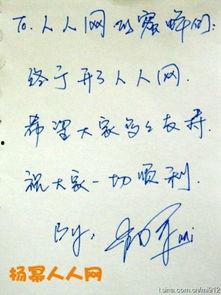 To. 人人网的蜜蜂们:
终于开了人人网.
希望大家多多支持.
祝大家一切顺利.
By,
mi
杨幂人人网
t.sina.com.cn/mi912